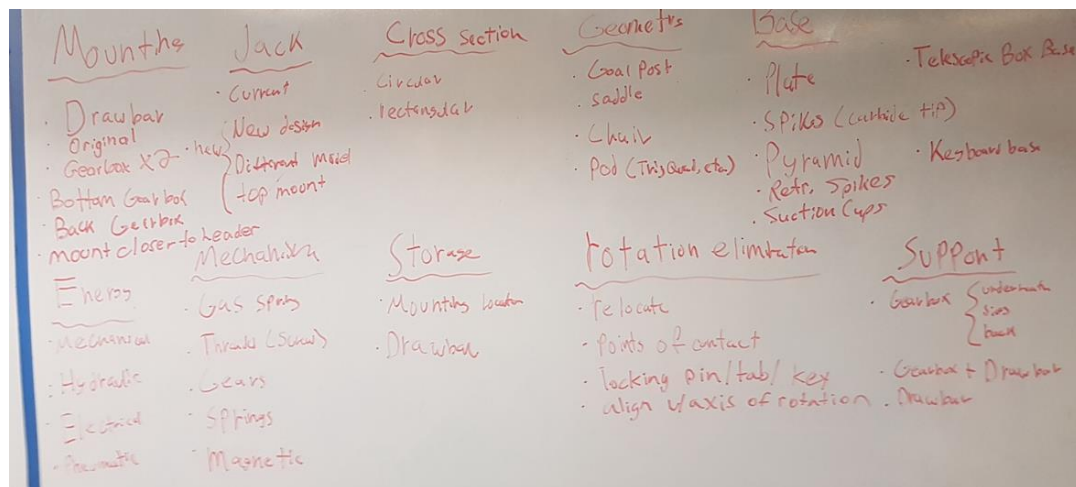 Mounting
· Drawbar
· Original
· Gearbox x2 · new
· Bottom Gearbox
· Back Gearbox
· mount closer to header
Jack
· Current
New design
Different model
top mount
Cross Section
· Circular
· rectangular
Geometry
· Goal Post
· saddle
· Chair
· Pod (Tri, Quad, etc.)
Base
· Plate
· Spikes (carbide tip)
· Pyramid
· Retr. Spikes
· Suction Cups
· Telescopic Box Base
· Keyboard base
Energy
· Mechanical
· Hydraulic
· Electrical
· Pneumatic
Mechanism
· Gas spring
· Threads (Screw)
· Gears
· Springs
· Magnetic
Storage
· Mounting Location
· Drawbar
rotation elimination
· relocate
· Points of contact
· locking pin/tab/key
· align w/axis of rotation
Support
· Gearbox { underneath
sides
back
· Gearbox + Drawbar
· Drawbar